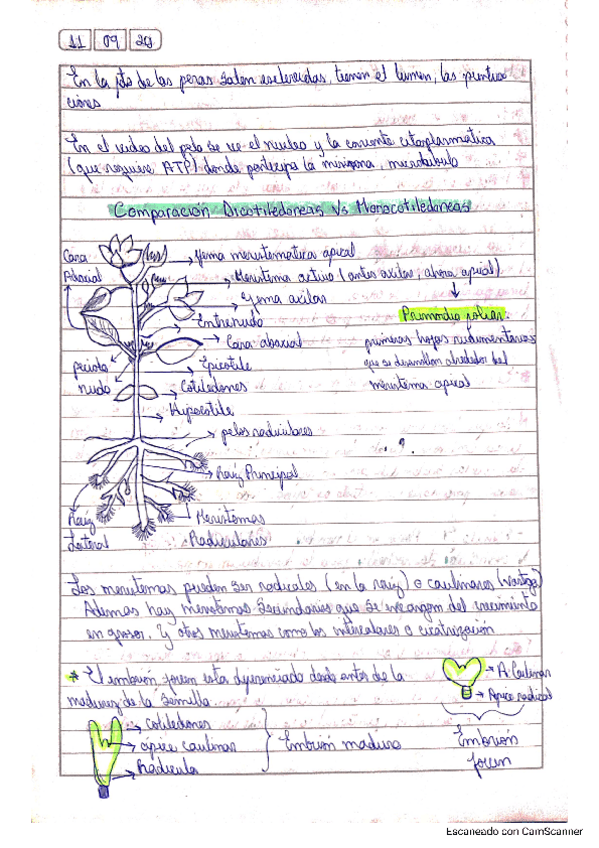 11 09 23
En la foto de las peras salen esclereidas, tienen el lumen, las puntua
ciones
En el video del pelo se ve el nucleo y la corriente citoplasmatica
(que requiere ATP) donde participa la miosina, microtubulo
Comparación Dicotiledoneas Vs Monocotiledoneas
Cara
Adaxial
Yema meristematica apical
Meristema activo (antes axilar, ahora apical)
Yema axilar
Primordio foliar:
Entrenudo
Cara abaxial
primeras hojas rudimentarias
que se desarrollan alrededor del
meristema apical
peciolo
nudo
Epicotile
Cotiledones
Hipocotile
pelos radiculares
Raíz Principal
Raíz
Lateral
Meristemas
Radiculares
Los meristemas pueden ser radicales (en la raíz) o caulinares (vastago)
Ademas hay meristemas secundarios que se encargan del crecimiento
en grosor. Y otros meristemas como los intercalares o cicatrización
* El embrión joven esta diferenciado desde antes de la
madurez de la semilla
A. Caulinar
Apice radical
Embrión
joven
Cotiledones
apice caulinar
Radicula
Embrión maduro
Escaneado con CamScanner